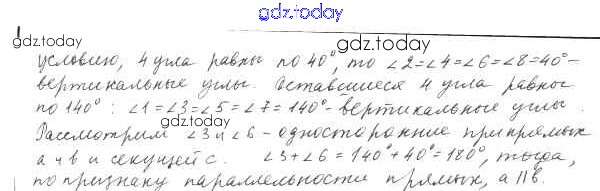 gdz.today
условию, 4 угла равны по 40°, то ∠2=∠4=∠6=∠8=40°-
gdz.today
вертикальные углы. Оставшиеся 4 угла равны
по 140° : ∠1=∠3=∠5=∠7=140°-вертикальные углы.
gdz.today
Рассмотрим ∠3 и ∠6 - односторонние при прямых
а и в и секущей с. ∠3+∠6=140°+40°=180°, тогда,
по признаку параллельности прямых, а||в.